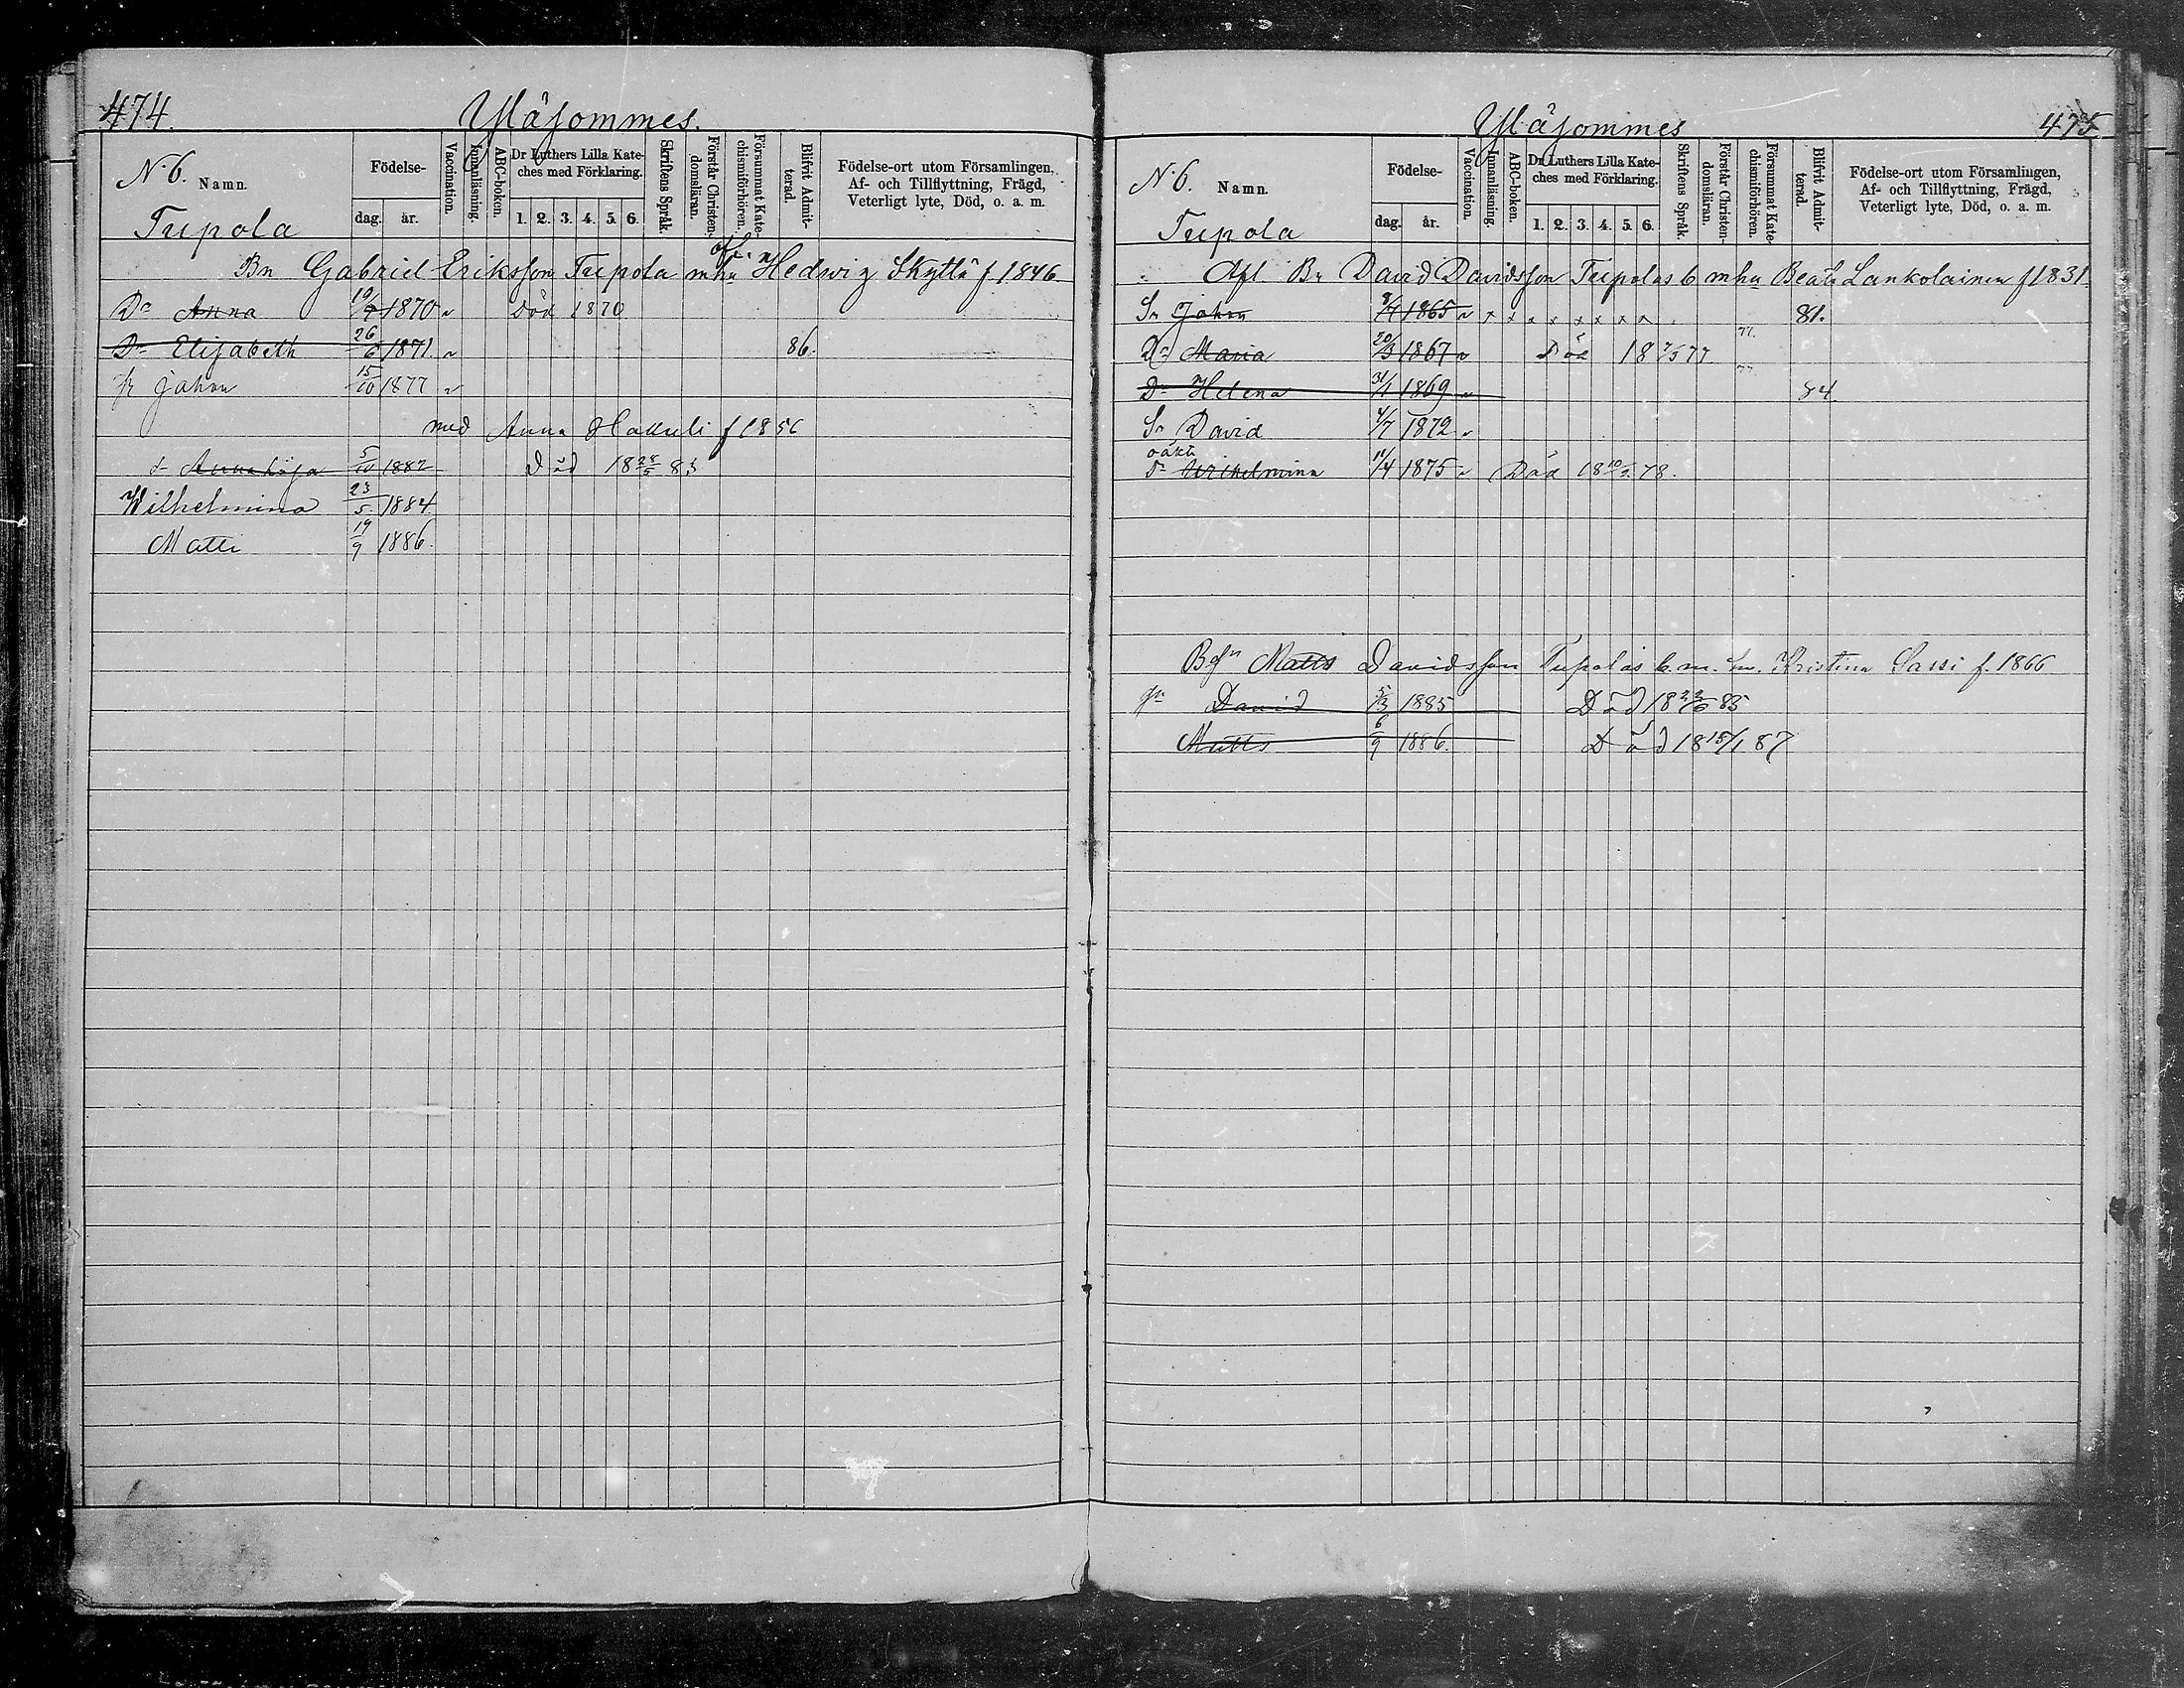 474.
Yläsommes.
N:6. Namn.
Tupola
Födelse-
dag. år.
Vaccination.
Innanläsning.
ABC-boken.
Dr Luthers Lilla Kate-
ches med Förklaring.
1. 2. 3. 4. 5. 6.
Skriftens Språk.
Förstår Christen-
domsläran.
Försummat Kate-
chismiförhören.
Blifvit Admit-
terad.
Födelse-ort utom Församlingen,
Af- och Tillflyttning, Frägd,
Veterligt lyte, Död, o. a. m.
Bn Gabriel Eriksson Tupola m hu afl. Hedwig Skyttä f. 1846.
Dr Anna 19/7 1870 v Död 1870
Dr Elisabeth 26/6 1871. v 86.
Johan 15/10 1877 v
med Anna Hakuli f 1856
d. 5/10 1882 Död 18 28/5 83
Wilhelmina 23/5 1884.
Matti 19/9 1886.
Yläsommes
475
N:6. Namn.
Tupola
Födelse-
dag. år.
Vaccination.
Innanläsning.
ABC-boken.
Dr Luthers Lilla Kate-
ches med Förklaring.
1. 2. 3. 4. 5. 6.
Skriftens Språk.
Förstår Christen-
domsläran.
Försummat Kate-
chismiförhören.
Blifvit Admit-
terad.
Födelse-ort utom Församlingen,
Af- och Tillflyttning, Frägd,
Veterligt lyte, Död, o. a. m.
Afl. Bn David Davidsson Tupolas b m hu Beata Lankolainen f 1831.
Sn Johan 1865 v x x x x x x x x 81.
Dr Maria 20/3 1867 v Död 18 7/5 77 77.
Dr Helena 31/1 1869 v 77 84.
Sn David 4/7 1872 v
oäkta
dr Wilhelmina 11/4 1875 v Död 18 10/2 78.
Matts Davidsson Tupolas b. m. hu. Kristina Sassi f. 1866
David 5/3 1885 Död 18 22/6 85
Matts 6/9 1886. Död 18 18/1 87